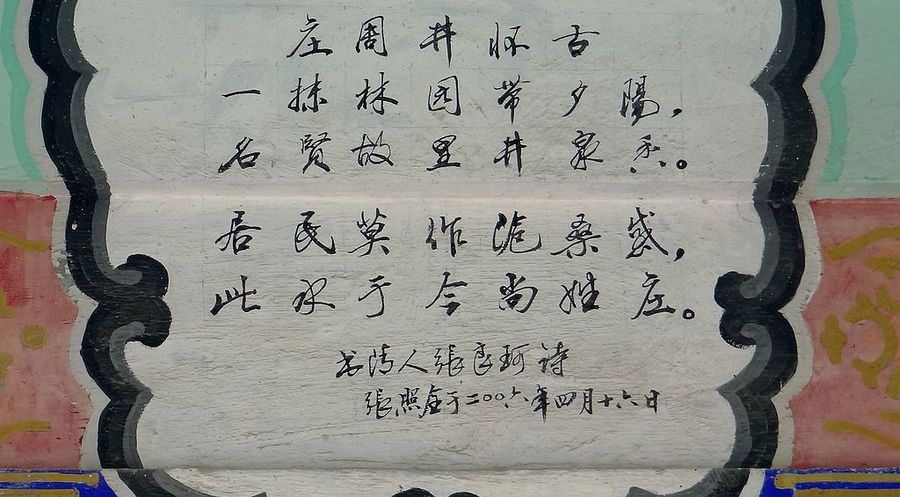 庄周井怀古
一抹林园带夕陽，
名賢故里井泉香。
居民莫作沧桑感，
此水于今尚姓庄。
书清人張良珂诗
張照于二〇〇六年四月十六日